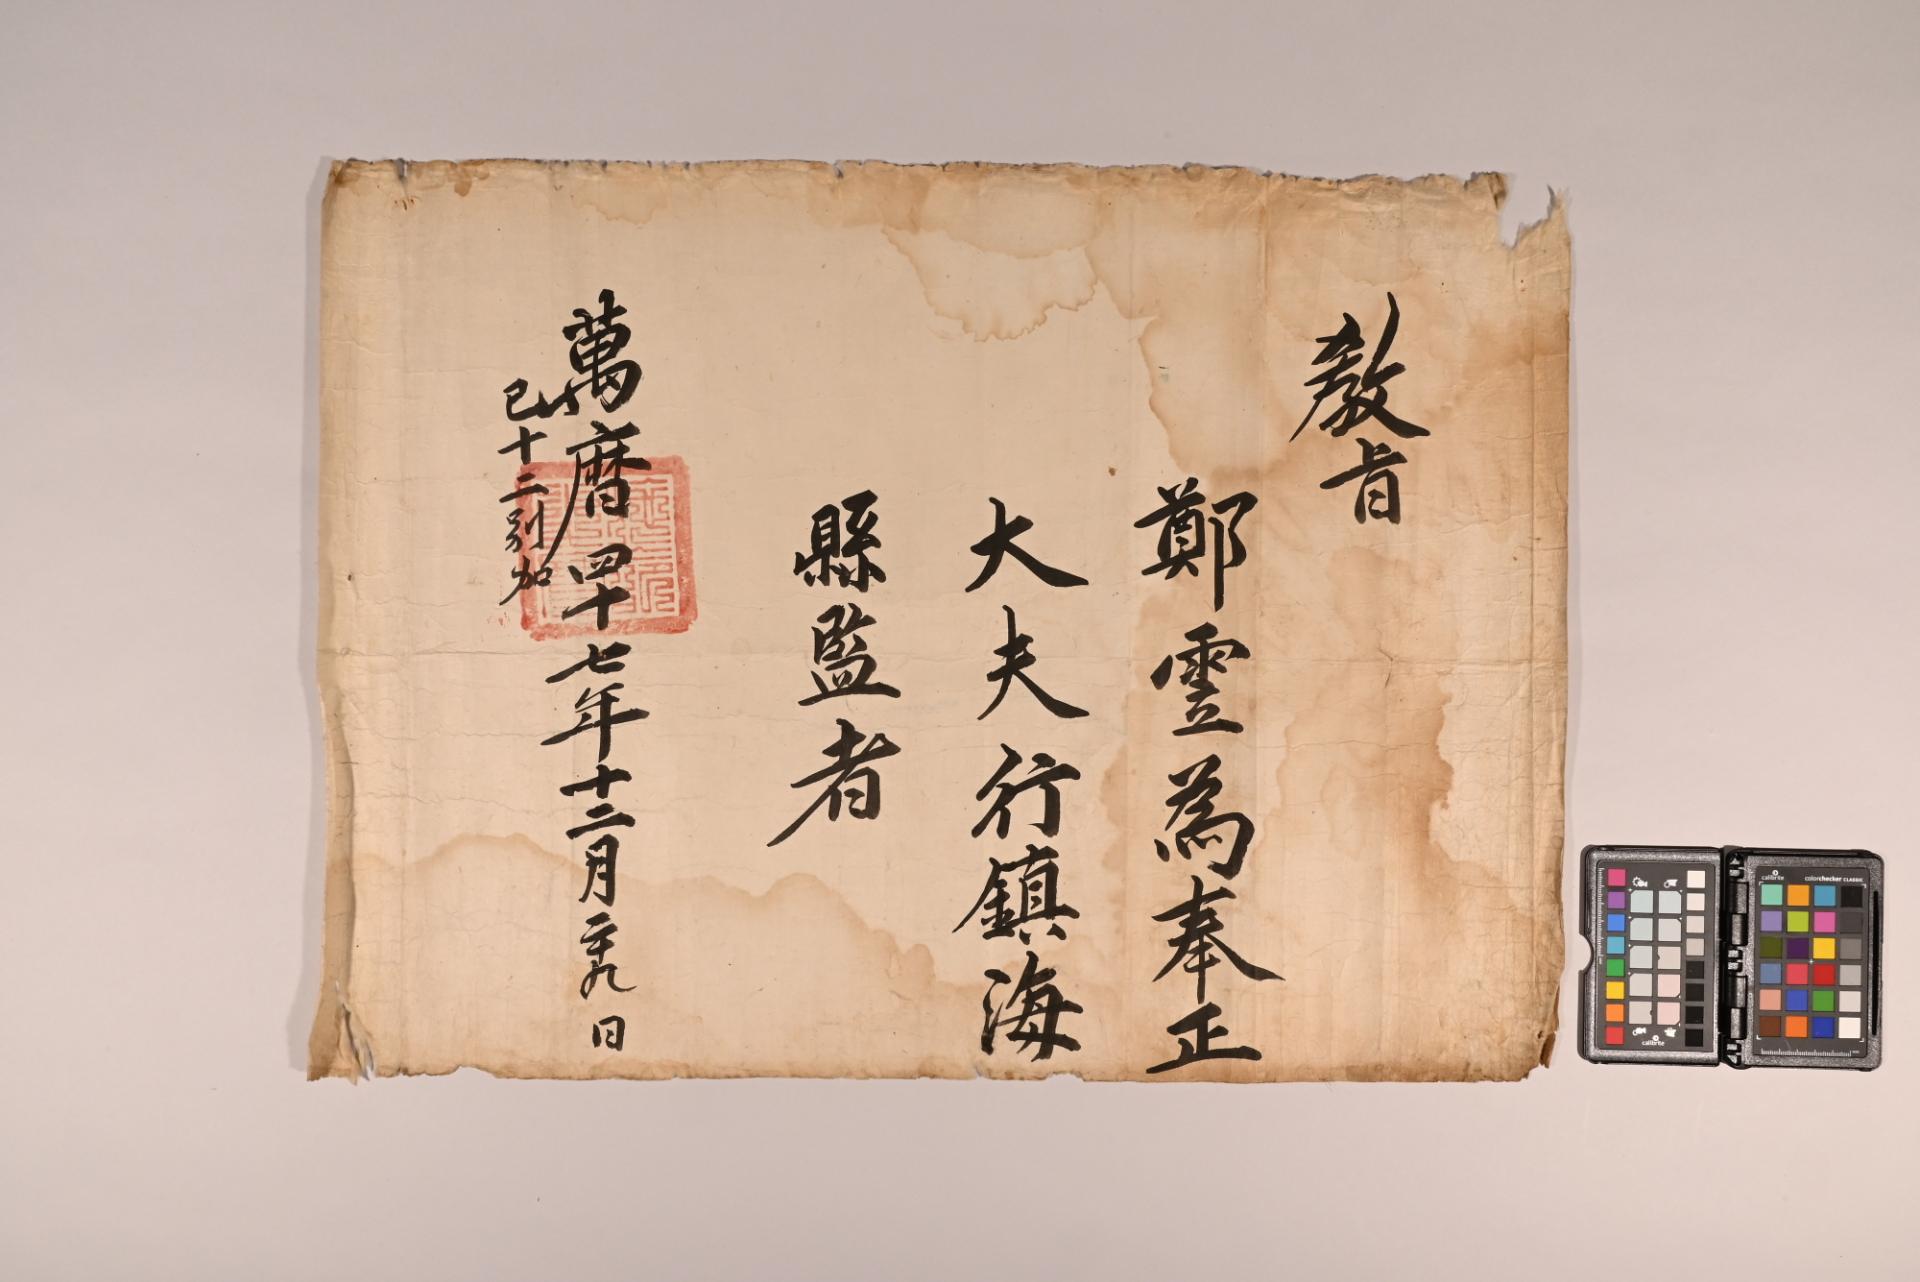 教旨
鄭雴為奉正
大夫行鎮海
縣監者
萬曆四十七年十二月二十九日
己十二別加
calibrite
calibrite
colorchecker CLASSIC